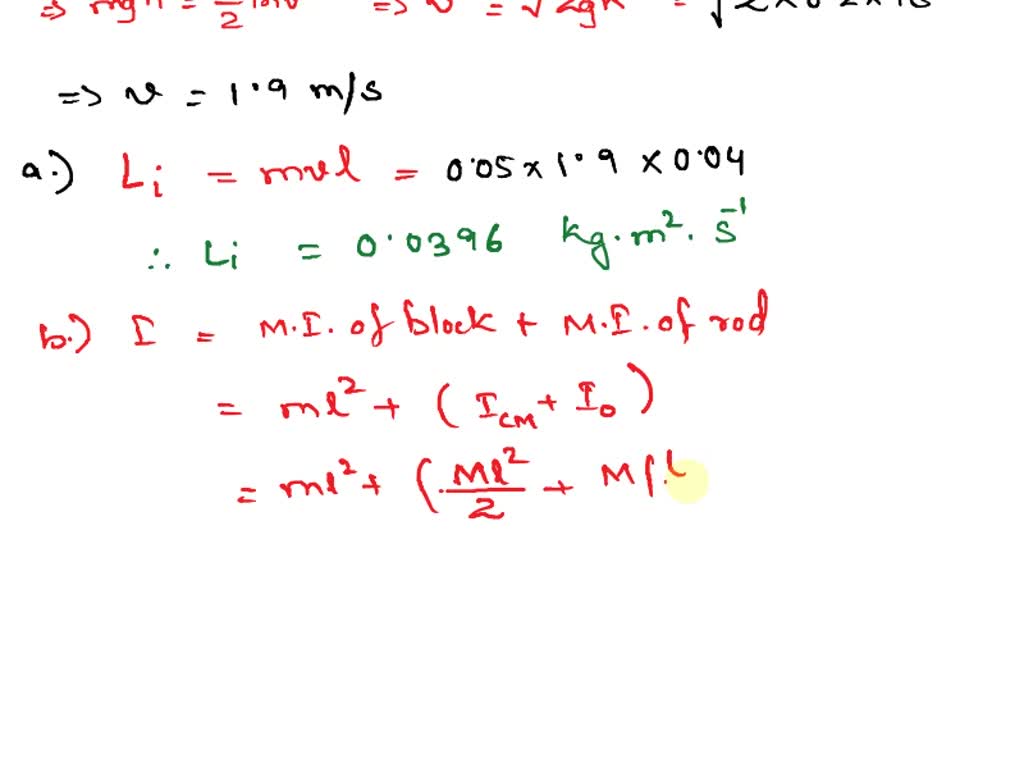 ⇒ mgh = 1/2 mv² ⇒ v = √2gh = √2×0.2×10
⇒ v = 1.9 m/s
a.) Li = mvl = 0.05 × 1.9 × 0.04
∴ Li = 0.0396 kg.m².s⁻¹
b.) I = M.I. of block + M.I. of rod
= ml² + (I_CM + I_0)
= ml² + (Ml²/2 + M(